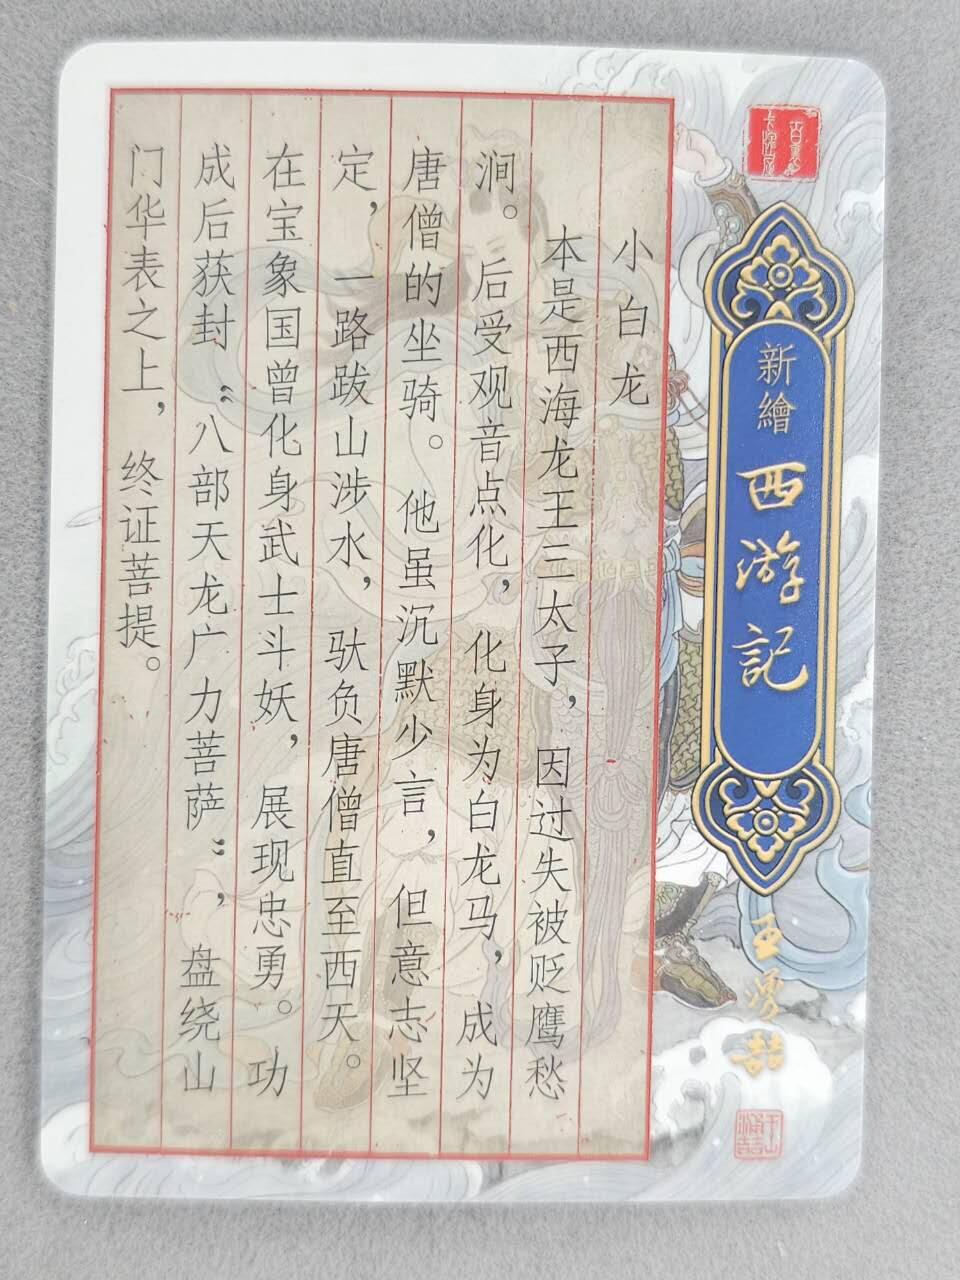 新繪
西游記
小白龙
本是西海龙王三太子，因过失被贬鹰愁
涧。后受观音点化，化身为白龙马，成为
唐僧的坐骑。他虽沉默少言，但意志坚
定，一路跋山涉水，驮负唐僧直至西天。
在宝象国曾化身武士斗妖，展现忠勇。功
成后获封“八部天龙广力菩萨”，盘绕山
门华表之上，终证菩提。